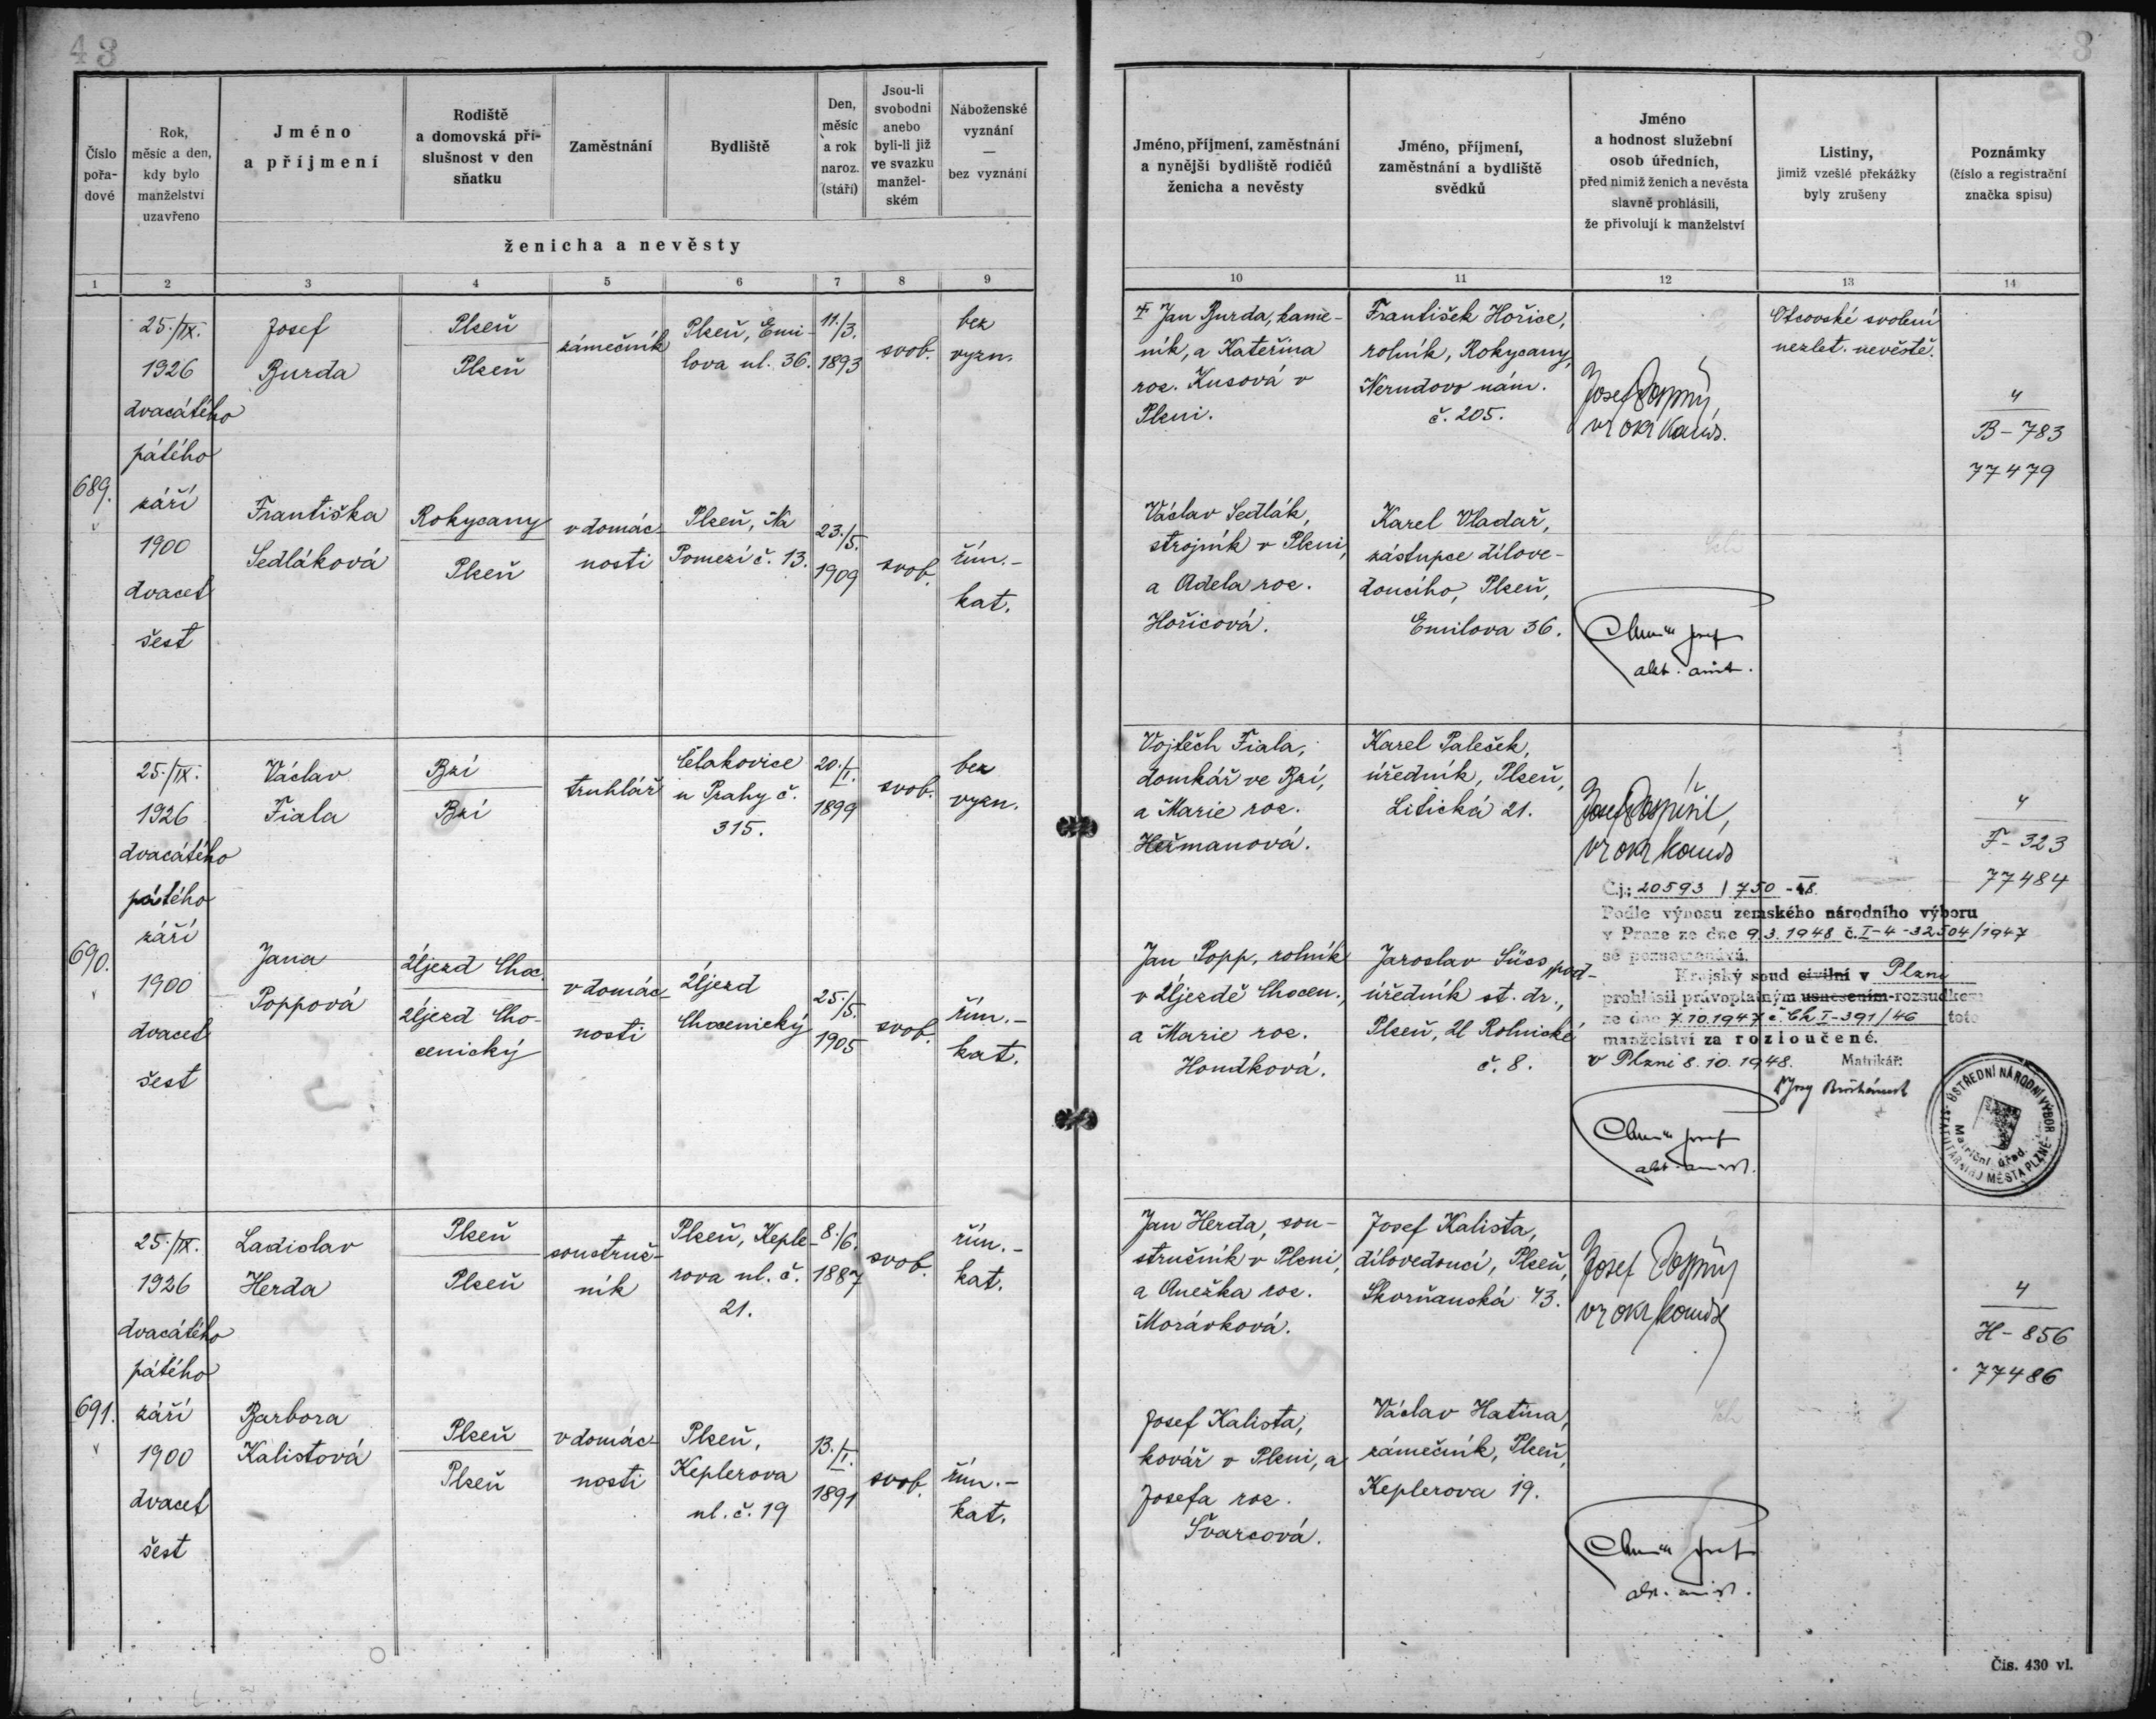 43
Číslo
pořa-
dové
Rok,
měsíc a den,
kdy bylo
manželství
uzavřeno
Jméno
a příjmení
Rodiště
a domovská pří-
slušnost v den
sňatku
Zaměstnání
Bydliště
Den,
měsíc
a rok
naroz.
(stáří)
Jsou-li
svobodni
anebo
byli-li již
ve svazku
manžel-
ském
Náboženské
vyznání
—
bez vyznání
ženicha a nevěsty
1 2 3 4 5 6 7 8 9
689.
25./IX.
1926
dvacátého
pátého
září
1900
dvacet
šest
Josef
Burda
Plzeň
Plzeň
zámečník
Plzeň, Emi-
lova ul. 36.
11./3.
1893
svob.
bez
vyzn.
Františka
Sedláková
Rokycany
Plzeň
v domác-
nosti
Plzeň, Na
Pomezí č. 13.
23./5.
1909
svob.
řím.-
kat.
690.
25./IX.
1926
dvacátého
pátého
září
1900
dvacet
šest
Václav
Fiala
Bzí
Bzí
truhlář
Čelakovice
u Prahy č.
315.
20./I.
1899
svob.
bez
vyzn.
Jana
Poppová
Újezd Choc.
Újezd Cho-
cenický
v domác-
nosti
Újezd
Chocenický
25./5.
1905
svob.
řím.-
kat.
691.
25./IX.
1926
dvacátého
pátého
září
1900
dvacet
šest
Ladislav
Herda
Plzeň
Plzeň
soustruž-
ník
Plzeň, Keple-
rova ul. č.
21.
8./6.
1887
svob.
řím.-
kat.
Barbora
Kalistová
Plzeň
Plzeň
v domác-
nosti
Plzeň,
Keplerova
ul. č. 19
13./I.
1891
svob.
řím.-
kat.
3
Jméno, příjmení, zaměstnání
a nynější bydliště rodičů
ženicha a nevěsty
Jméno, příjmení,
zaměstnání a bydliště
svědků
Jméno
a hodnost služební
osob úředních,
před nimiž ženich a nevěsta
slavně prohlásili,
že přivolují k manželství
Listiny,
jimiž vzešlé překážky
byly zrušeny
Poznámky
(číslo a registrační
značka spisu)
10 11 12 13 14
† Jan Burda, kame-
ník, a Kateřina
roz. Kusová v
Plzni.
František Hořice,
rolník, Rokycany,
Nerudovo nám.
č. 205.
Josef Pospíšil,
vr okr komis.
Otcovské svolení
nezlet. nevěstě.
4
B-783
77479
Václav Sedlák,
strojník v Plzni,
a Adela roz.
Hořicová.
Karel Vladař,
zástupce dílove-
doucího, Plzeň,
Emilova 36.
Josef
Vojtěch Fiala,
domkář ve Bzí,
a Marie roz.
Heřmanová.
Karel Paleček,
úředník, Plzeň,
Litická 21.
Josef Pospíšil,
vr okr komis
4
F-323
77484
Č.j.: 20593 / 750 -48.
Podle výnosu zemského národního výboru
v Praze ze dne 9.3.1948 č. I-4-32504/1947
se poznamenává.
Krajský soud civilní v Plzni
prohlásil právoplatným usnesením-rozsudkem
ze dne 7.10.1947 č. Ck I-391/46 toto
manželství za rozloučené.
V Plzni 8.10.1948. Matrikář:
Jan Popp, rolník
v Újezdě Chocen.,
a Marie roz.
Houdková.
Jaroslav Süss, pod-
úředník st. dr.,
Plzeň, U Rolnické
č. 8.
Josef
ÚSTŘEDNÍ NÁRODNÍ VÝBOR
STATUTÁRNÍHO MĚSTA PLZNĚ
Matriční úřad.
Jan Herda, sou-
stružník v Plzni,
a Anežka roz.
Morávková.
Josef Kalista,
dílovedoucí, Plzeň,
Skvrňanská 43.
Josef Pospíšil
vr okr komis
4
H-856
77486
Josef Kalista,
kovář v Plzni, a
Josefa roz.
Švarcová.
Václav Hatina,
zámečník, Plzeň,
Keplerova 19.
Josef
Čís. 430 vl.